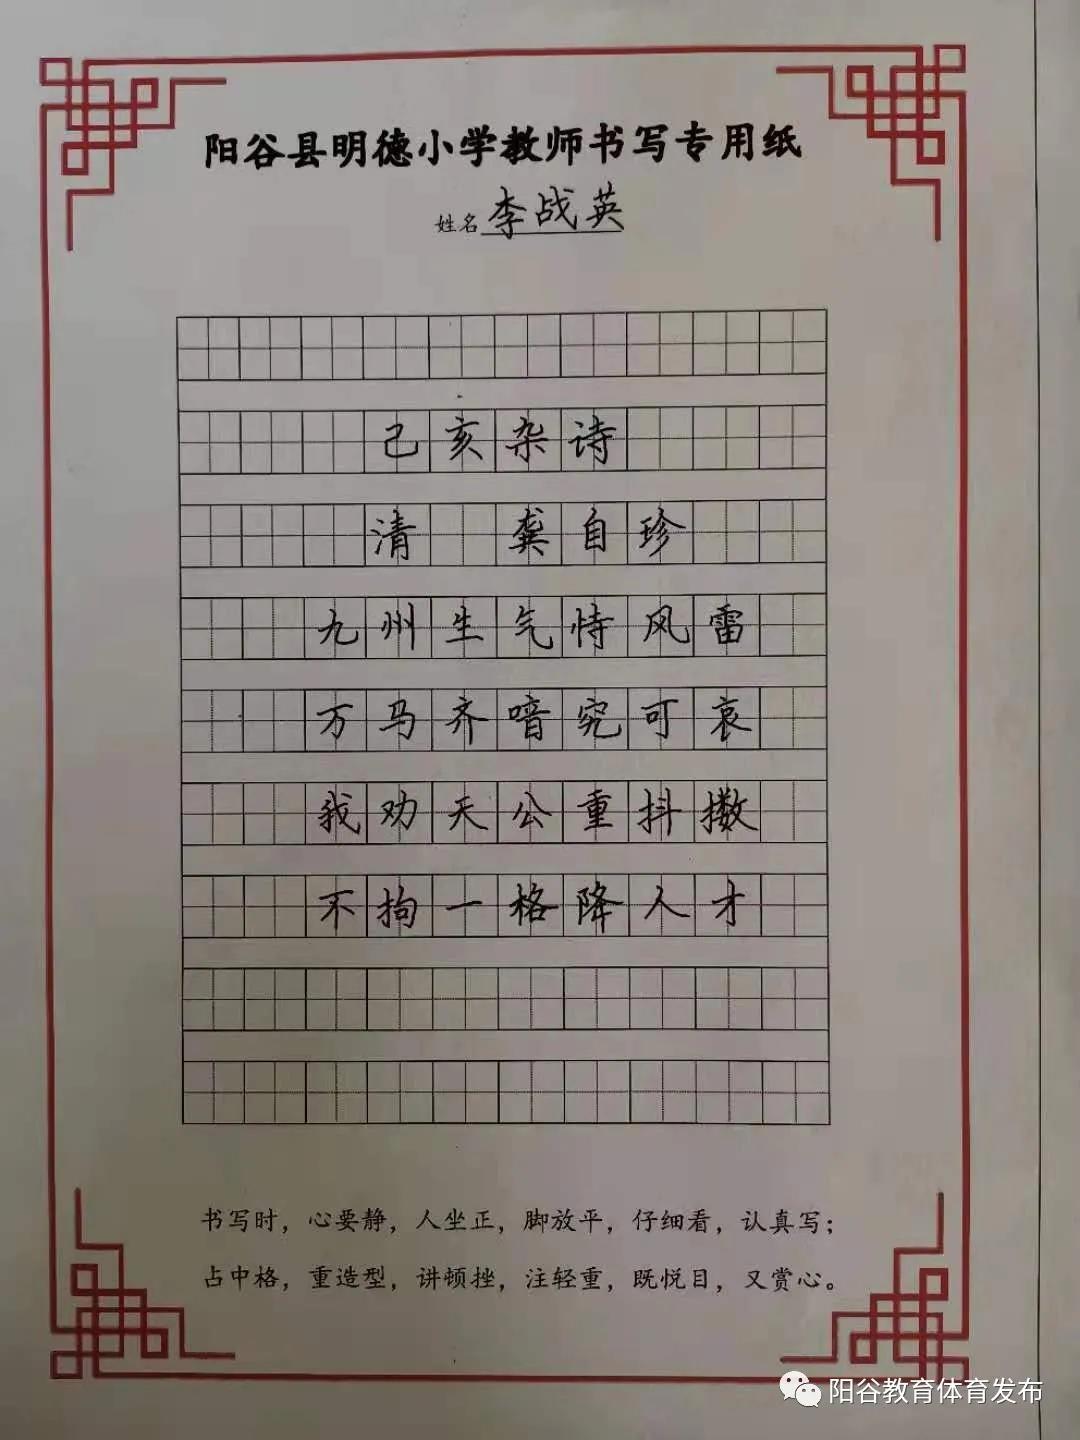 阳谷县明德小学教师书写专用纸
姓名 李战英
己亥杂诗
清 龚自珍
九州生气恃风雷
万马齐喑究可哀
我劝天公重抖擞
不拘一格降人才
书写时，心要静，人坐正，脚放平，仔细看，认真写；
占中格，重造型，讲顿挫，注轻重，既悦目，又赏心。
阳谷教育体育发布